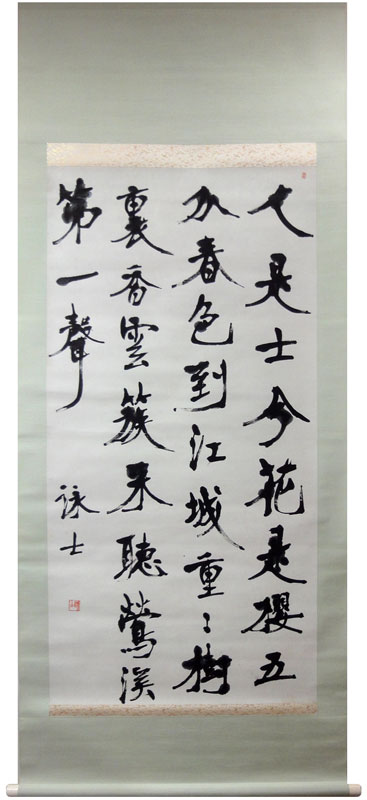 人是士兮花是櫻五
分春色到江城重〻樹
裏香雲簇来聽鶯渓
第一聲
詠士